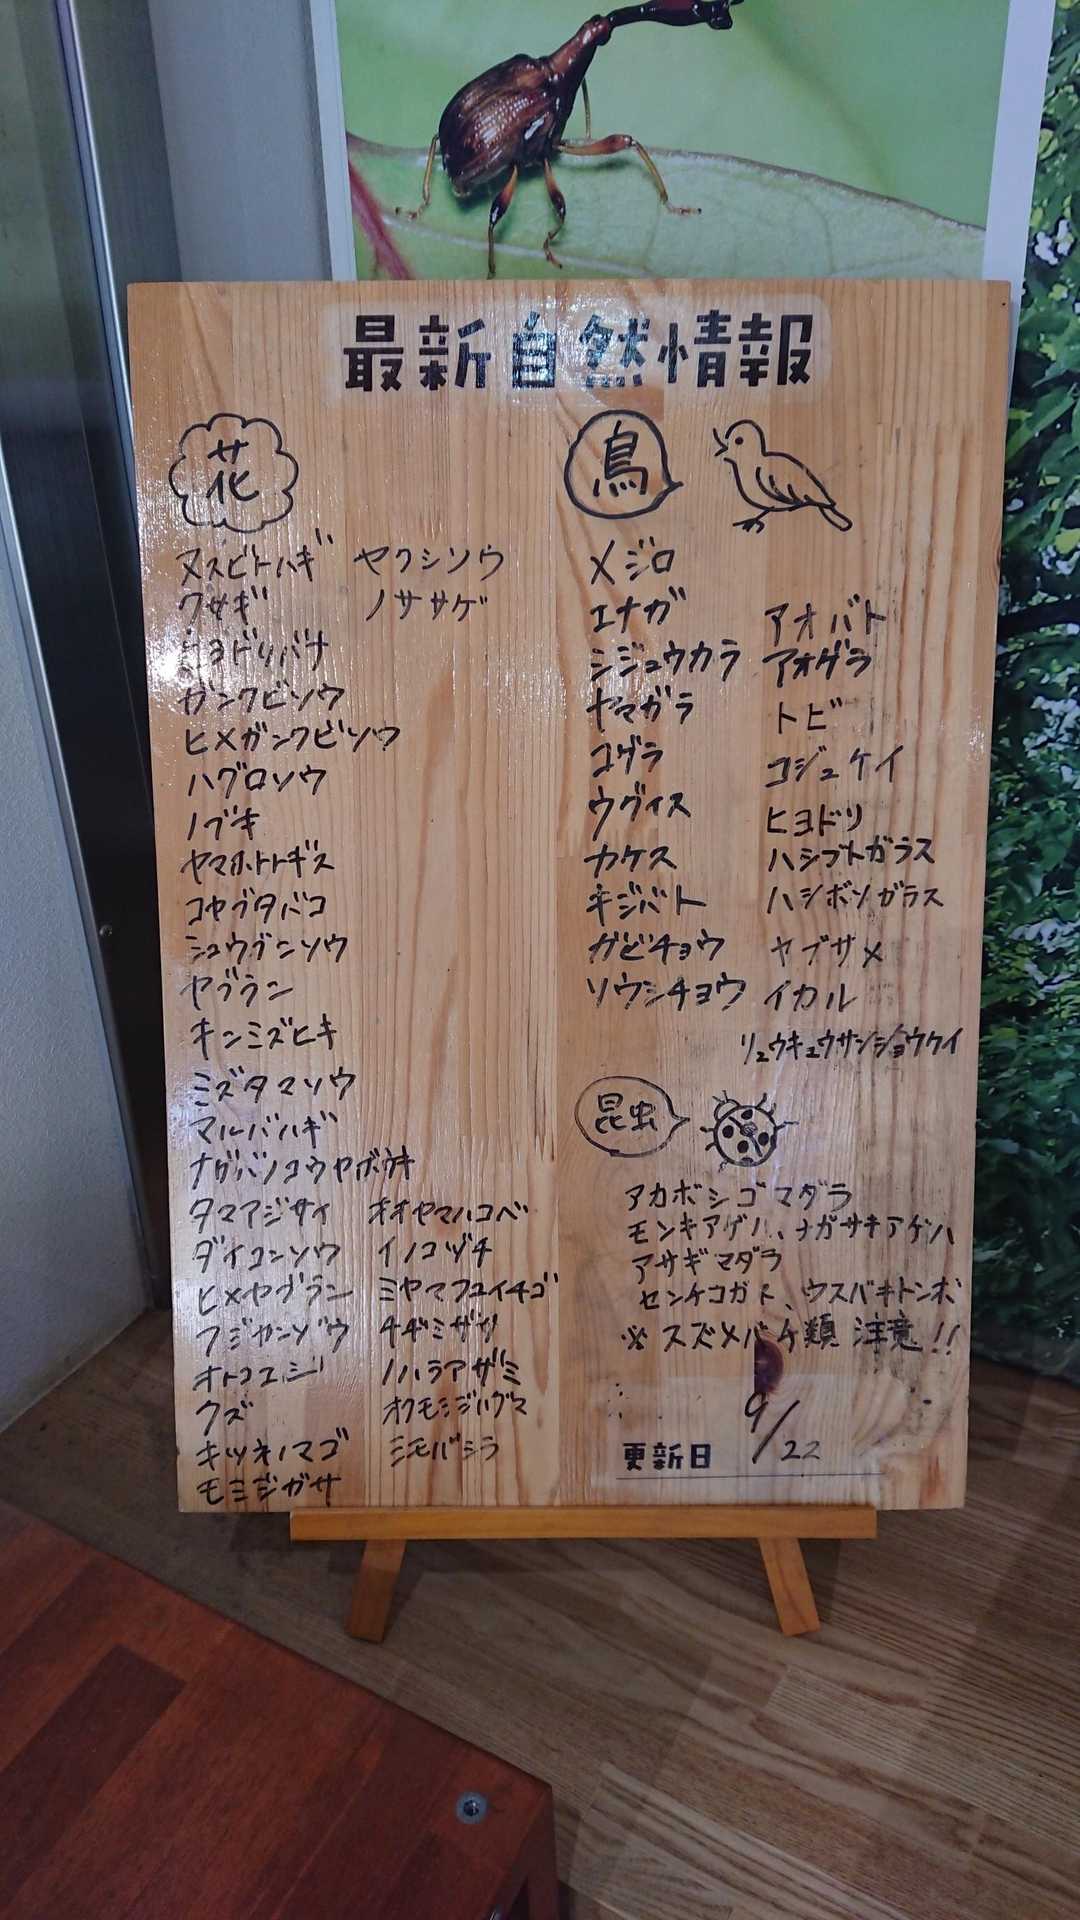 最新自然情報
花
ヌスビトハギ
クサギ
ヒヨドリバナ
ガンクビソウ
ヒメガンクビソウ
ハグロソウ
ノブキ
ヤマホトトギス
コヤブタバコ
シュウブンソウ
ヤブラン
キンミズヒキ
ミズタマソウ
マルバハギ
ナガバノコウヤボウキ
タマアジサイ
ダイコンソウ
ヒメヤブラン
フジカンゾウ
オトコエシ
クズ
キツネノマゴ
モミジガサ
ヤクシソウ
ノササゲ
オオヤマハコベ
イノコヅチ
ミヤマフユイチゴ
チヂミザサ
ノハラアザミ
オクモミジハグマ
ミモバシラ
鳥
メジロ
エナガ
シジュウカラ
ヤマガラ
コゲラ
ウグイス
カケス
キジバト
ガビチョウ
ソウシチョウ
アオバト
アオゲラ
トビ
コジュケイ
ヒヨドリ
ハシブトガラス
ハシボソガラス
ヤブサメ
イカル
リュウキュウサンショウクイ
昆虫
アカボシゴマダラ
モンキアゲハ、ナガサキアゲハ
アサギマダラ
センチコガネ、ウスバキトンボ
※スズメバチ類 注意!!
更新日 9/22